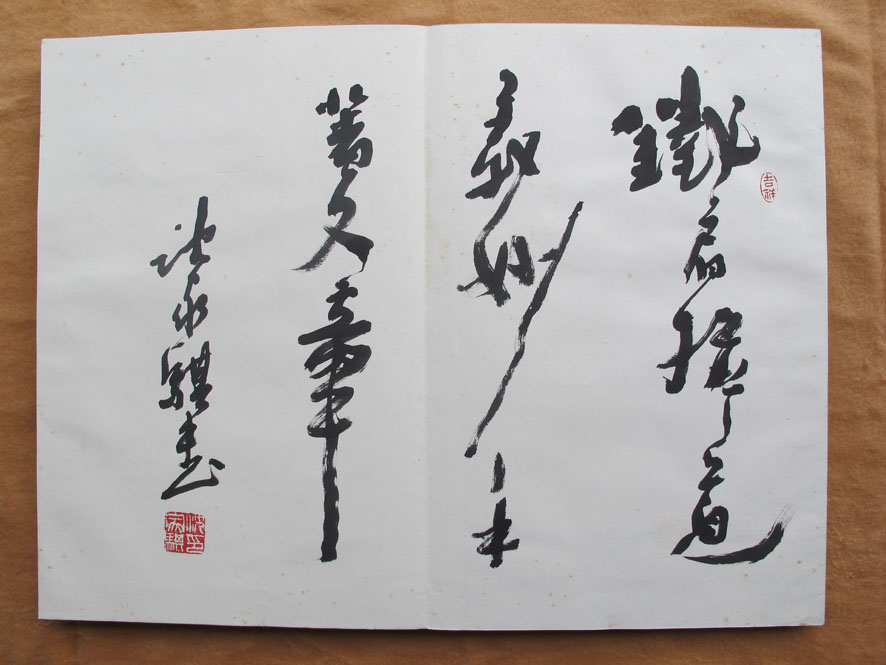 吉祥
鐵肩擔道
義妙手
著文章
沈永騏書